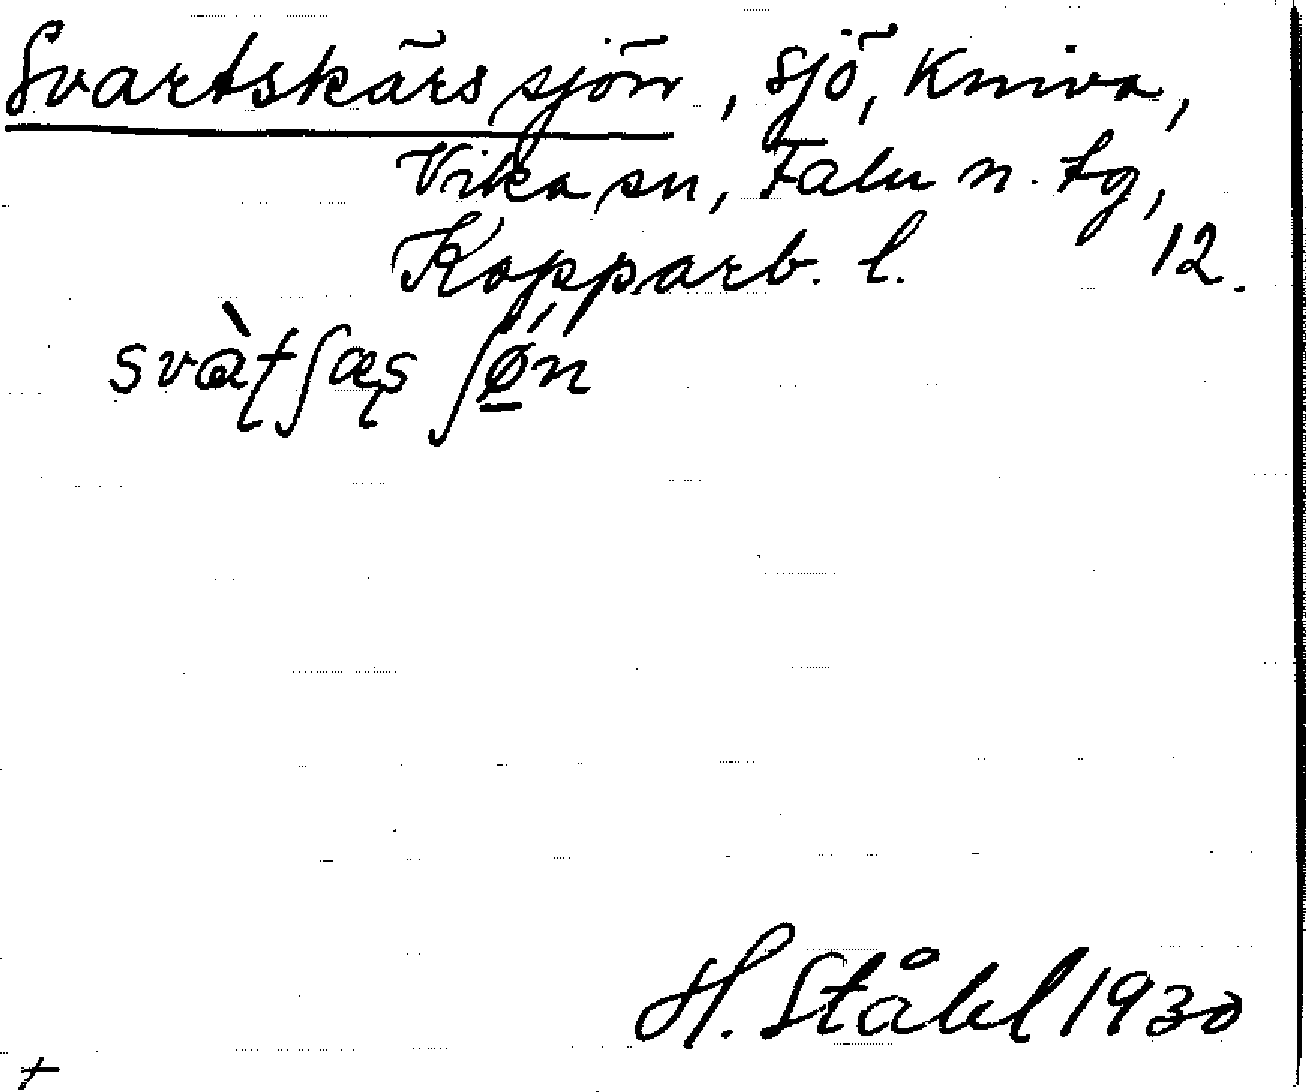 Svartskärssjön, sjö, Kniva,
Vika sn, Falu n. tg,
Kopparb. l. 12.
H. Ståhl 1930